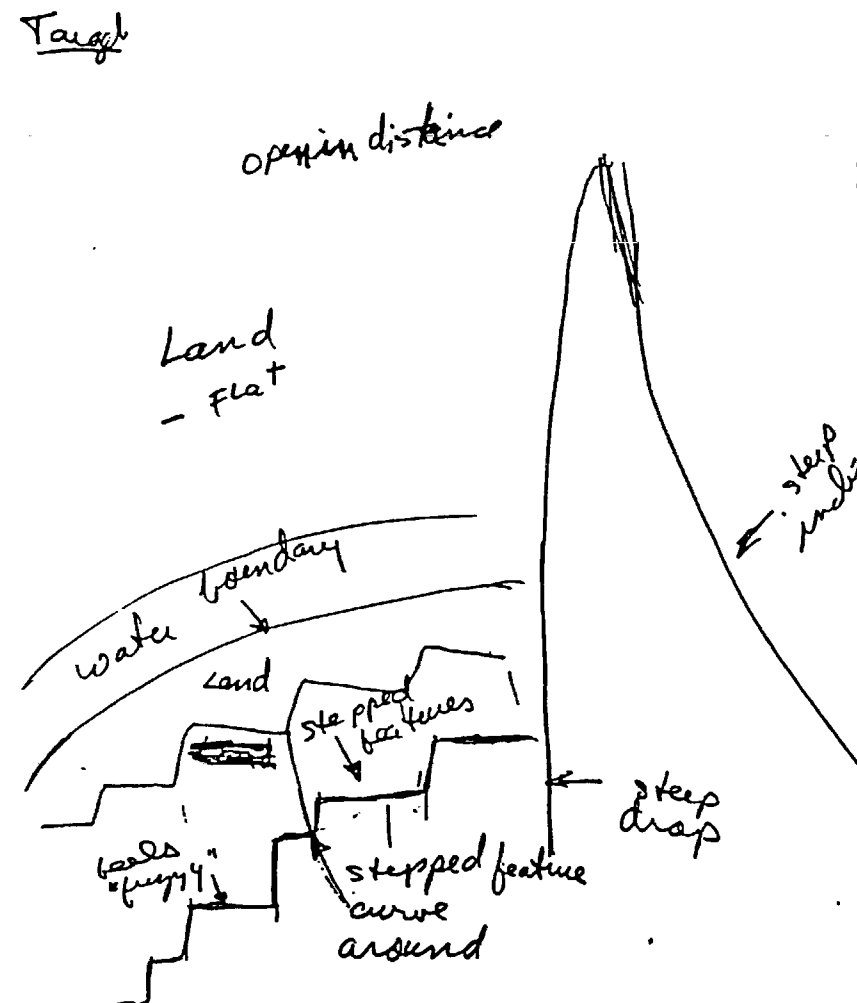 Target
open in distance
Land
- FLat
steep
boundary
water
Land
stepped
features
steep
drop
feels
"fuzzy"
stepped feature
curve
around